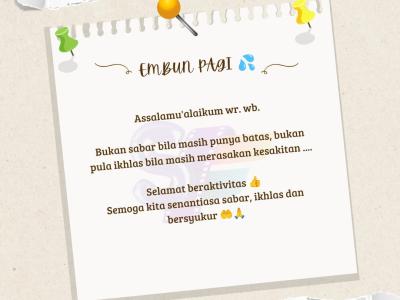 EMBUN PAGI 💦
Assalamu'alaikum wr. wb.
Bukan sabar bila masih punya batas, bukan
pula ikhlas bila masih merasakan kesakitan ....
Selamat beraktivitas 👍
Semoga kita senantiasa sabar, ikhlas dan
bersyukur 🤲🙏